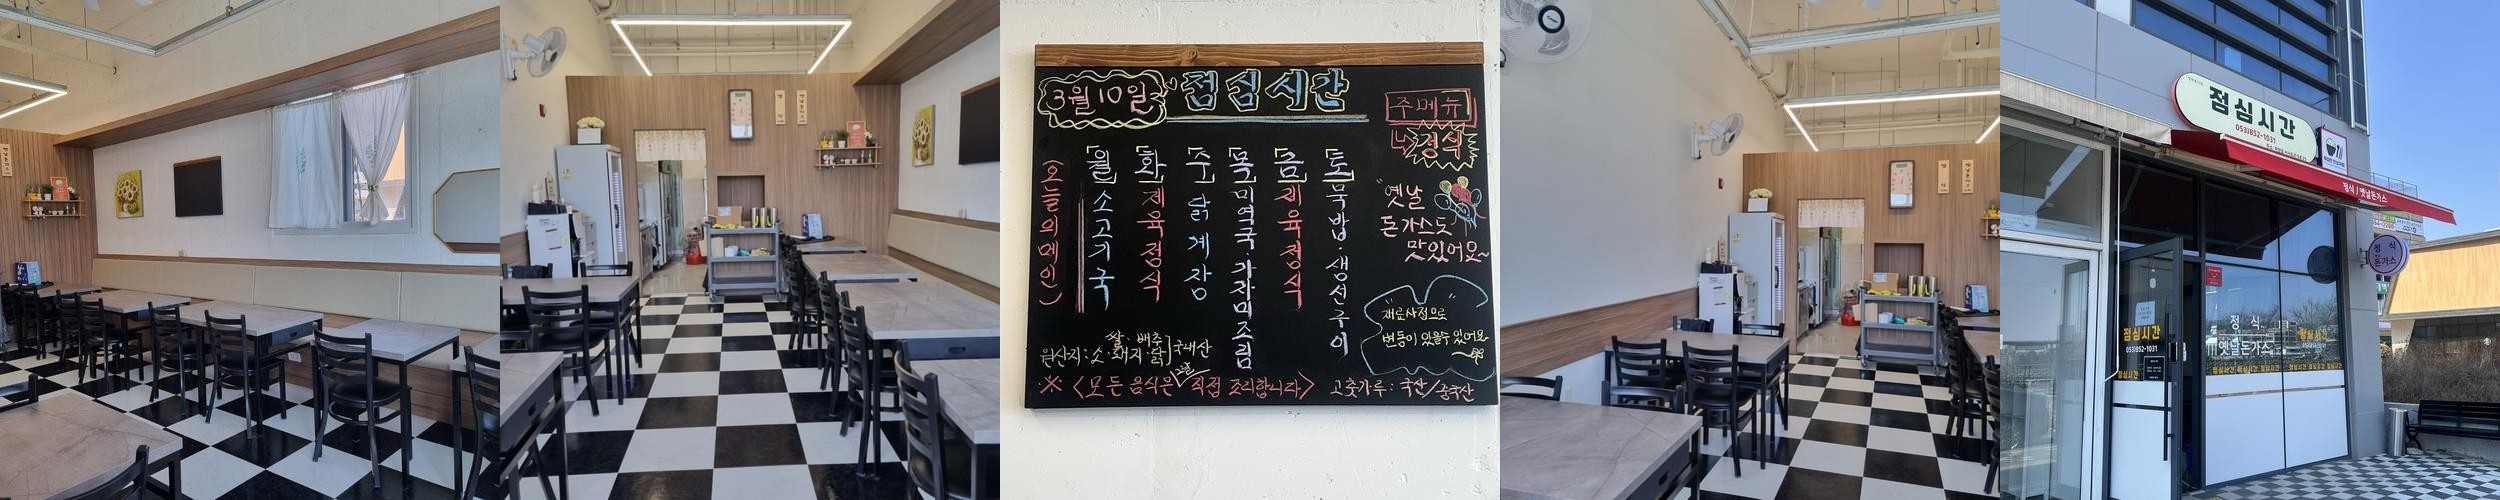 3월 10일
점심시간
주메뉴
정식
(오늘의 메인)
「월」 소고기국
「화」 제육정식
「수」 닭계장
「목」 미역국·가자미조림
「금」 제육정식
「토」 묵밥·생선구이
"옛날
돈가스도
맛있어요~
재료사정으로
변동이 있을수 있어요
쌀·배추
원산지: 소·돼지·닭 국내산
※ <모든 음식은 직접 조리합니다>
고춧가루: 국산/중국산
점심시간
053)852-1031
정식 / 옛날돈가스
정식
돈가스
점심시간
053)852-1031
점심시간
정식
옛날돈가스
점심시간